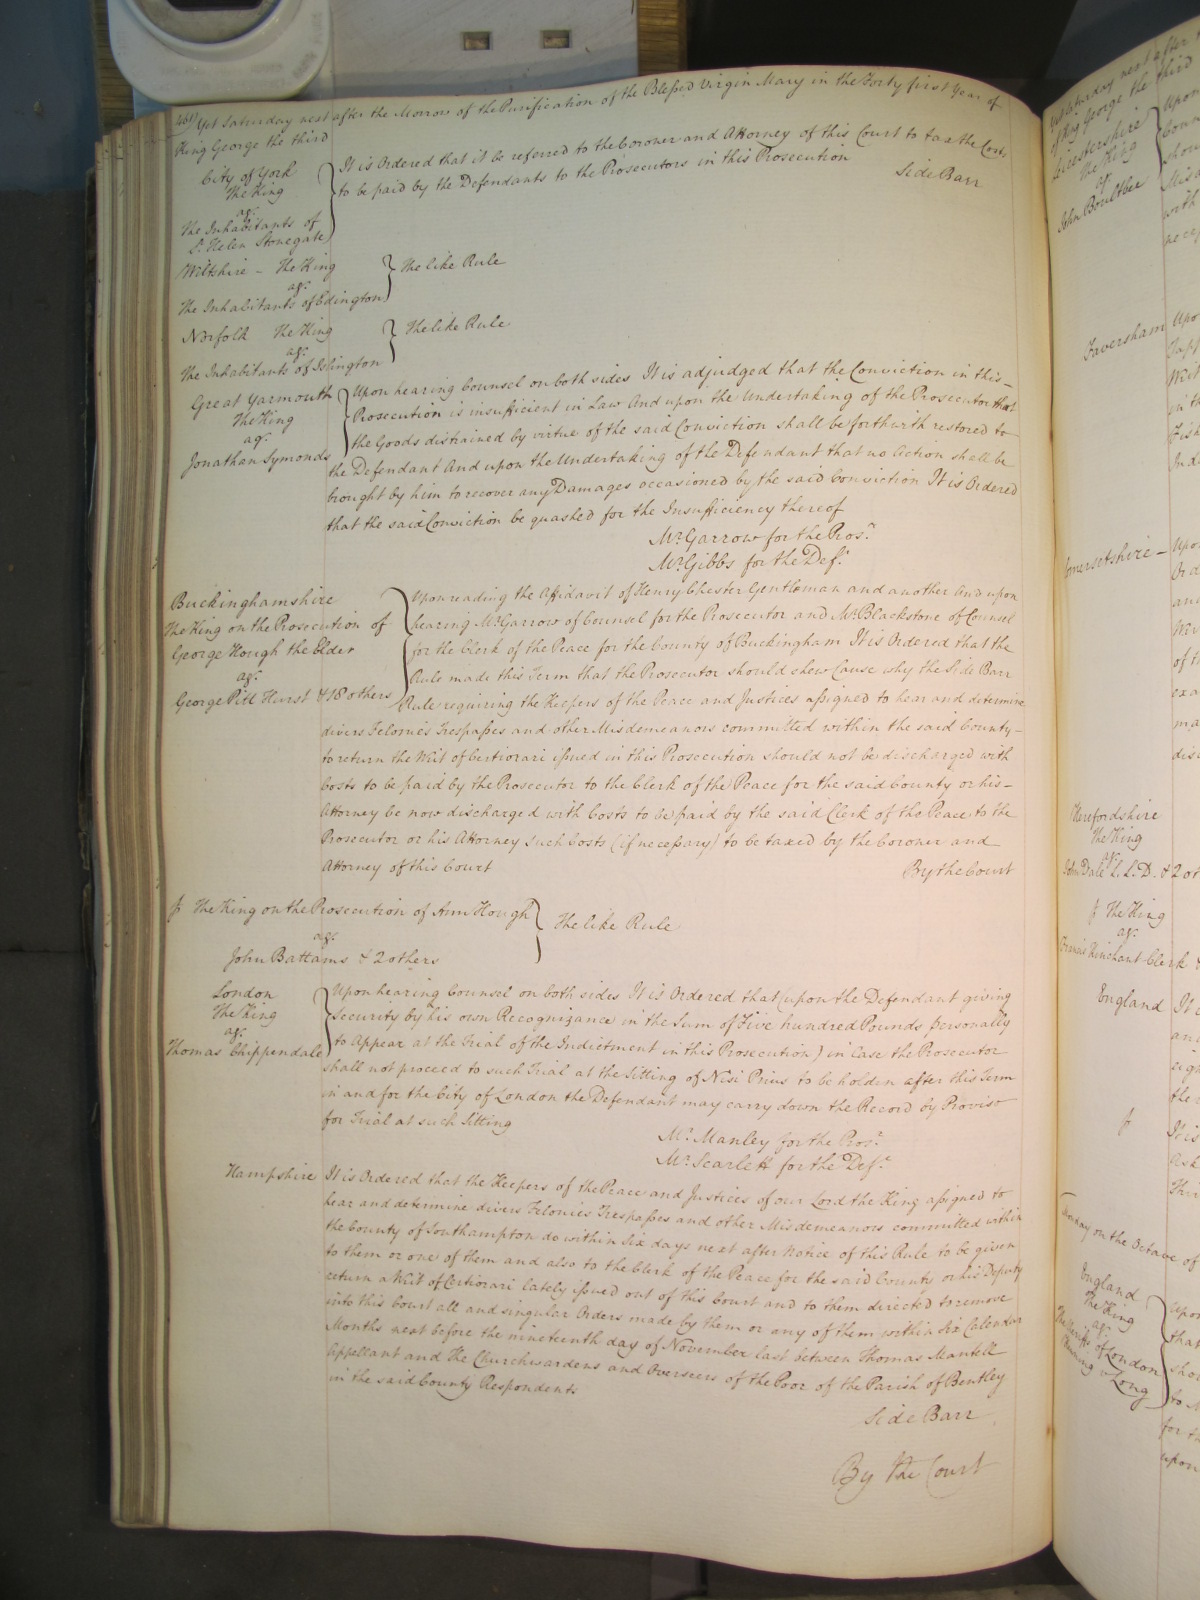 461) Yet Saturday next after the Morrow of the Purification of the Blessed Virgin Mary in the Forty first Year of
King George the third
City of York
The King
agt.
The Inhabitants of
St. Helen Stonegate
It is Ordered that it be referred to the Coroner and Attorney of this Court to tax the Costs
to be paid by the Defendants to the Prosecutors in this Prosecution
Side Barr
Wiltshire - The King
agt.
The Inhabitants of Edington
The like Rule
Norfolk The King
agt.
The Inhabitants of Islington
The like Rule
Great Yarmouth
The King
agt.
Jonathan Symonds
Upon hearing Counsel on both sides It is adjudged that the Conviction in this
Prosecution is insufficient in Law And upon the Undertaking of the Prosecutor that
the Goods distrained by virtue of the said Conviction shall be forthwith restored to
the Defendant And upon the Undertaking of the Defendant that no Action shall be
brought by him to recover any Damages occasioned by the said Conviction It is Ordered
that the said Conviction be quashed for the Insufficiency thereof
Mr. Garrow for the Prosr.
Mr. Gibbs for the Deft.
Buckinghamshire
The King on the Prosecution of
George Hough the Elder
agt.
George Pitt Hurst & 18 others
Upon reading the Affidavit of Henry Chester Gentleman and another And upon
hearing Mr. Garrow of Counsel for the Prosecutor and Mr. Blackstone of Counsel
for the Clerk of the Peace for the County of Buckingham It is Ordered that the
Rule made this Term that the Prosecutor should shew Cause why the Side Barr
Rule requiring the Keepers of the Peace and Justices assigned to hear and determine
divers Felonies Trespasses and other Misdemeanors committed within the said County
to return the Writ of Certiorari issued in this Prosecution should not be discharged with
Costs to be paid by the Prosecutor to the Clerk of the Peace for the said County or his
Attorney be now discharged with Costs to be paid by the said Clerk of the Peace to the
Prosecutor or his Attorney such Costs (if necessary) to be taxed by the Coroner and
Attorney of this Court
By the Court
The King on the Prosecution of Ann Hough
agt.
John Battams & 2 others
The like Rule
London
The King
agt.
Thomas Chippendale
Upon hearing Counsel on both sides It is Ordered that (upon the Defendant giving
Security by his own Recognizance in the Sum of Five hundred Pounds personally
to Appear at the Trial of the Indictment in this Prosecution) in Case the Prosecutor
shall not proceed to such Trial at the Sitting of Nisi Prius to be holden after this Term
in and for the City of London the Defendant may carry down the Record by Proviso
for Trial at such Sitting
Mr. Manley for the Prosr.
Mr. Scarlett for the Deft.
Hampshire
It is Ordered that the Keepers of the Peace and Justices of our Lord the King assigned to
hear and determine divers Felonies Trespasses and other Misdemeanors committed within
the County of Southampton do within Six days next after Notice of this Rule to be given
to them or one of them and also to the Clerk of the Peace for the said County or his Deputy
return a Writ of Certiorari lately issued out of this Court and to them directed to remove
into this Court all and singular Orders made by them or any of them within six Calendar
Months next before the nineteenth day of November last between Thomas Mantell
Appellant and the Churchwardens and Overseers of the Poor of the Parish of Bentley
in the said County Respondents
Side Barr
By the Court
Yet Saturday next after
of King George the third
Leicestershire
The King
agt.
John Boultbee
Faversham
Somersetshire -
Herefordshire
The King
agt.
John Dale L.L.D. & 2
The King
agt.
England
on the Octave of
England
The King
agt.
of London
Long